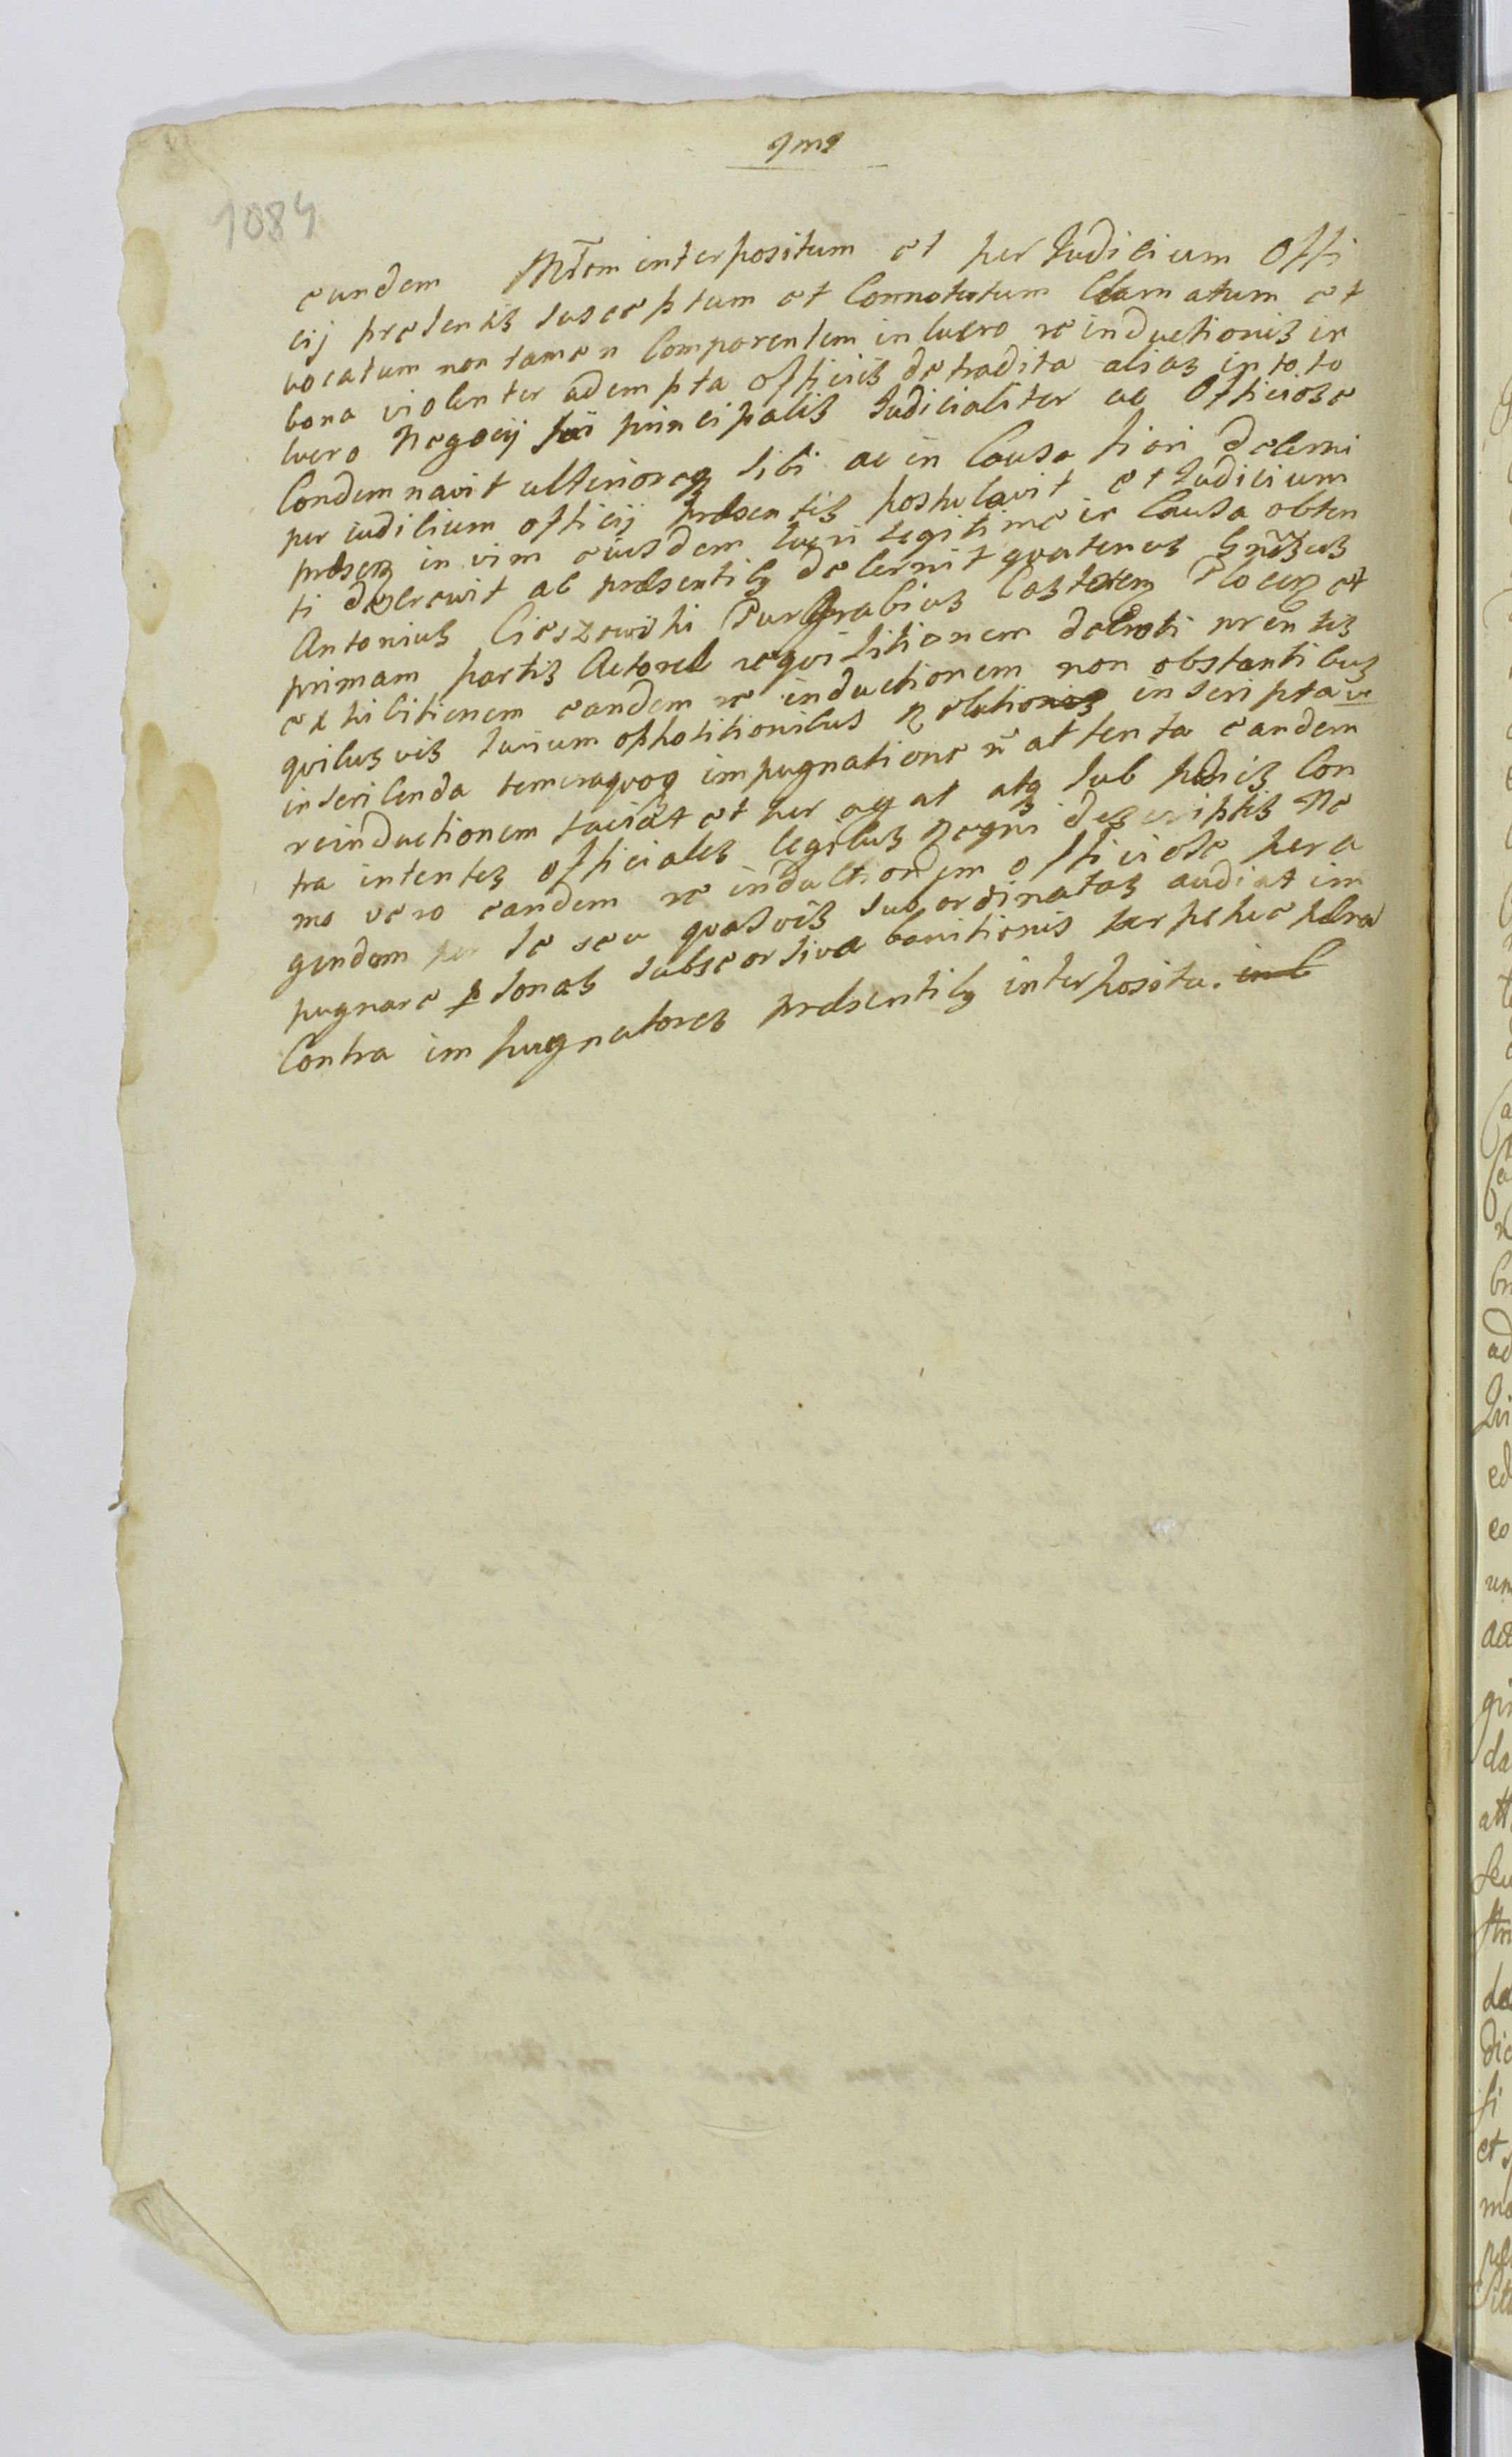 1084
eundem Mrem interpositum et per Judicium Offi
cij presentis susceptum et Connotatum Clamatum et
vocatum non tamen Comparentem in lucro reinductionis in
bona violenter adempta officiis de tradita alias in toto
lucro Negocij sui principalis Judicialiter ac Officiose
Condemnavit ulterioreq sibi ac in Causa fieri decerni
per iudicium officij præsentis postulavit et Judicium
præsens in vim eiusdem lucri legitime in Causa obten
ti decrevit ac præsentib decernit quatenus Gnosus
Antonius Cieszewski Burgrabius Castren Plocen et
primam partis Actoreæ requisitionem decreti nrentis
exhibitionem eandem reinductionem non obstantibus
quibusvis Jurium oppositionibus relationis inscripta ve
inscribenda temeraquoq impugnatione n attenta eandem
reinductionem faciat et per agat atq sub pænis Con
tra intentes officiales legibus Regni descriptis Ne
mo vero eandem reinductionem officiose pera
gendam per se seu quasvis subordinatas audiat im
pugnare psonas sub seorsiva banitionis perpetuæ pæna
Contra impugnatores præsentib interposita.